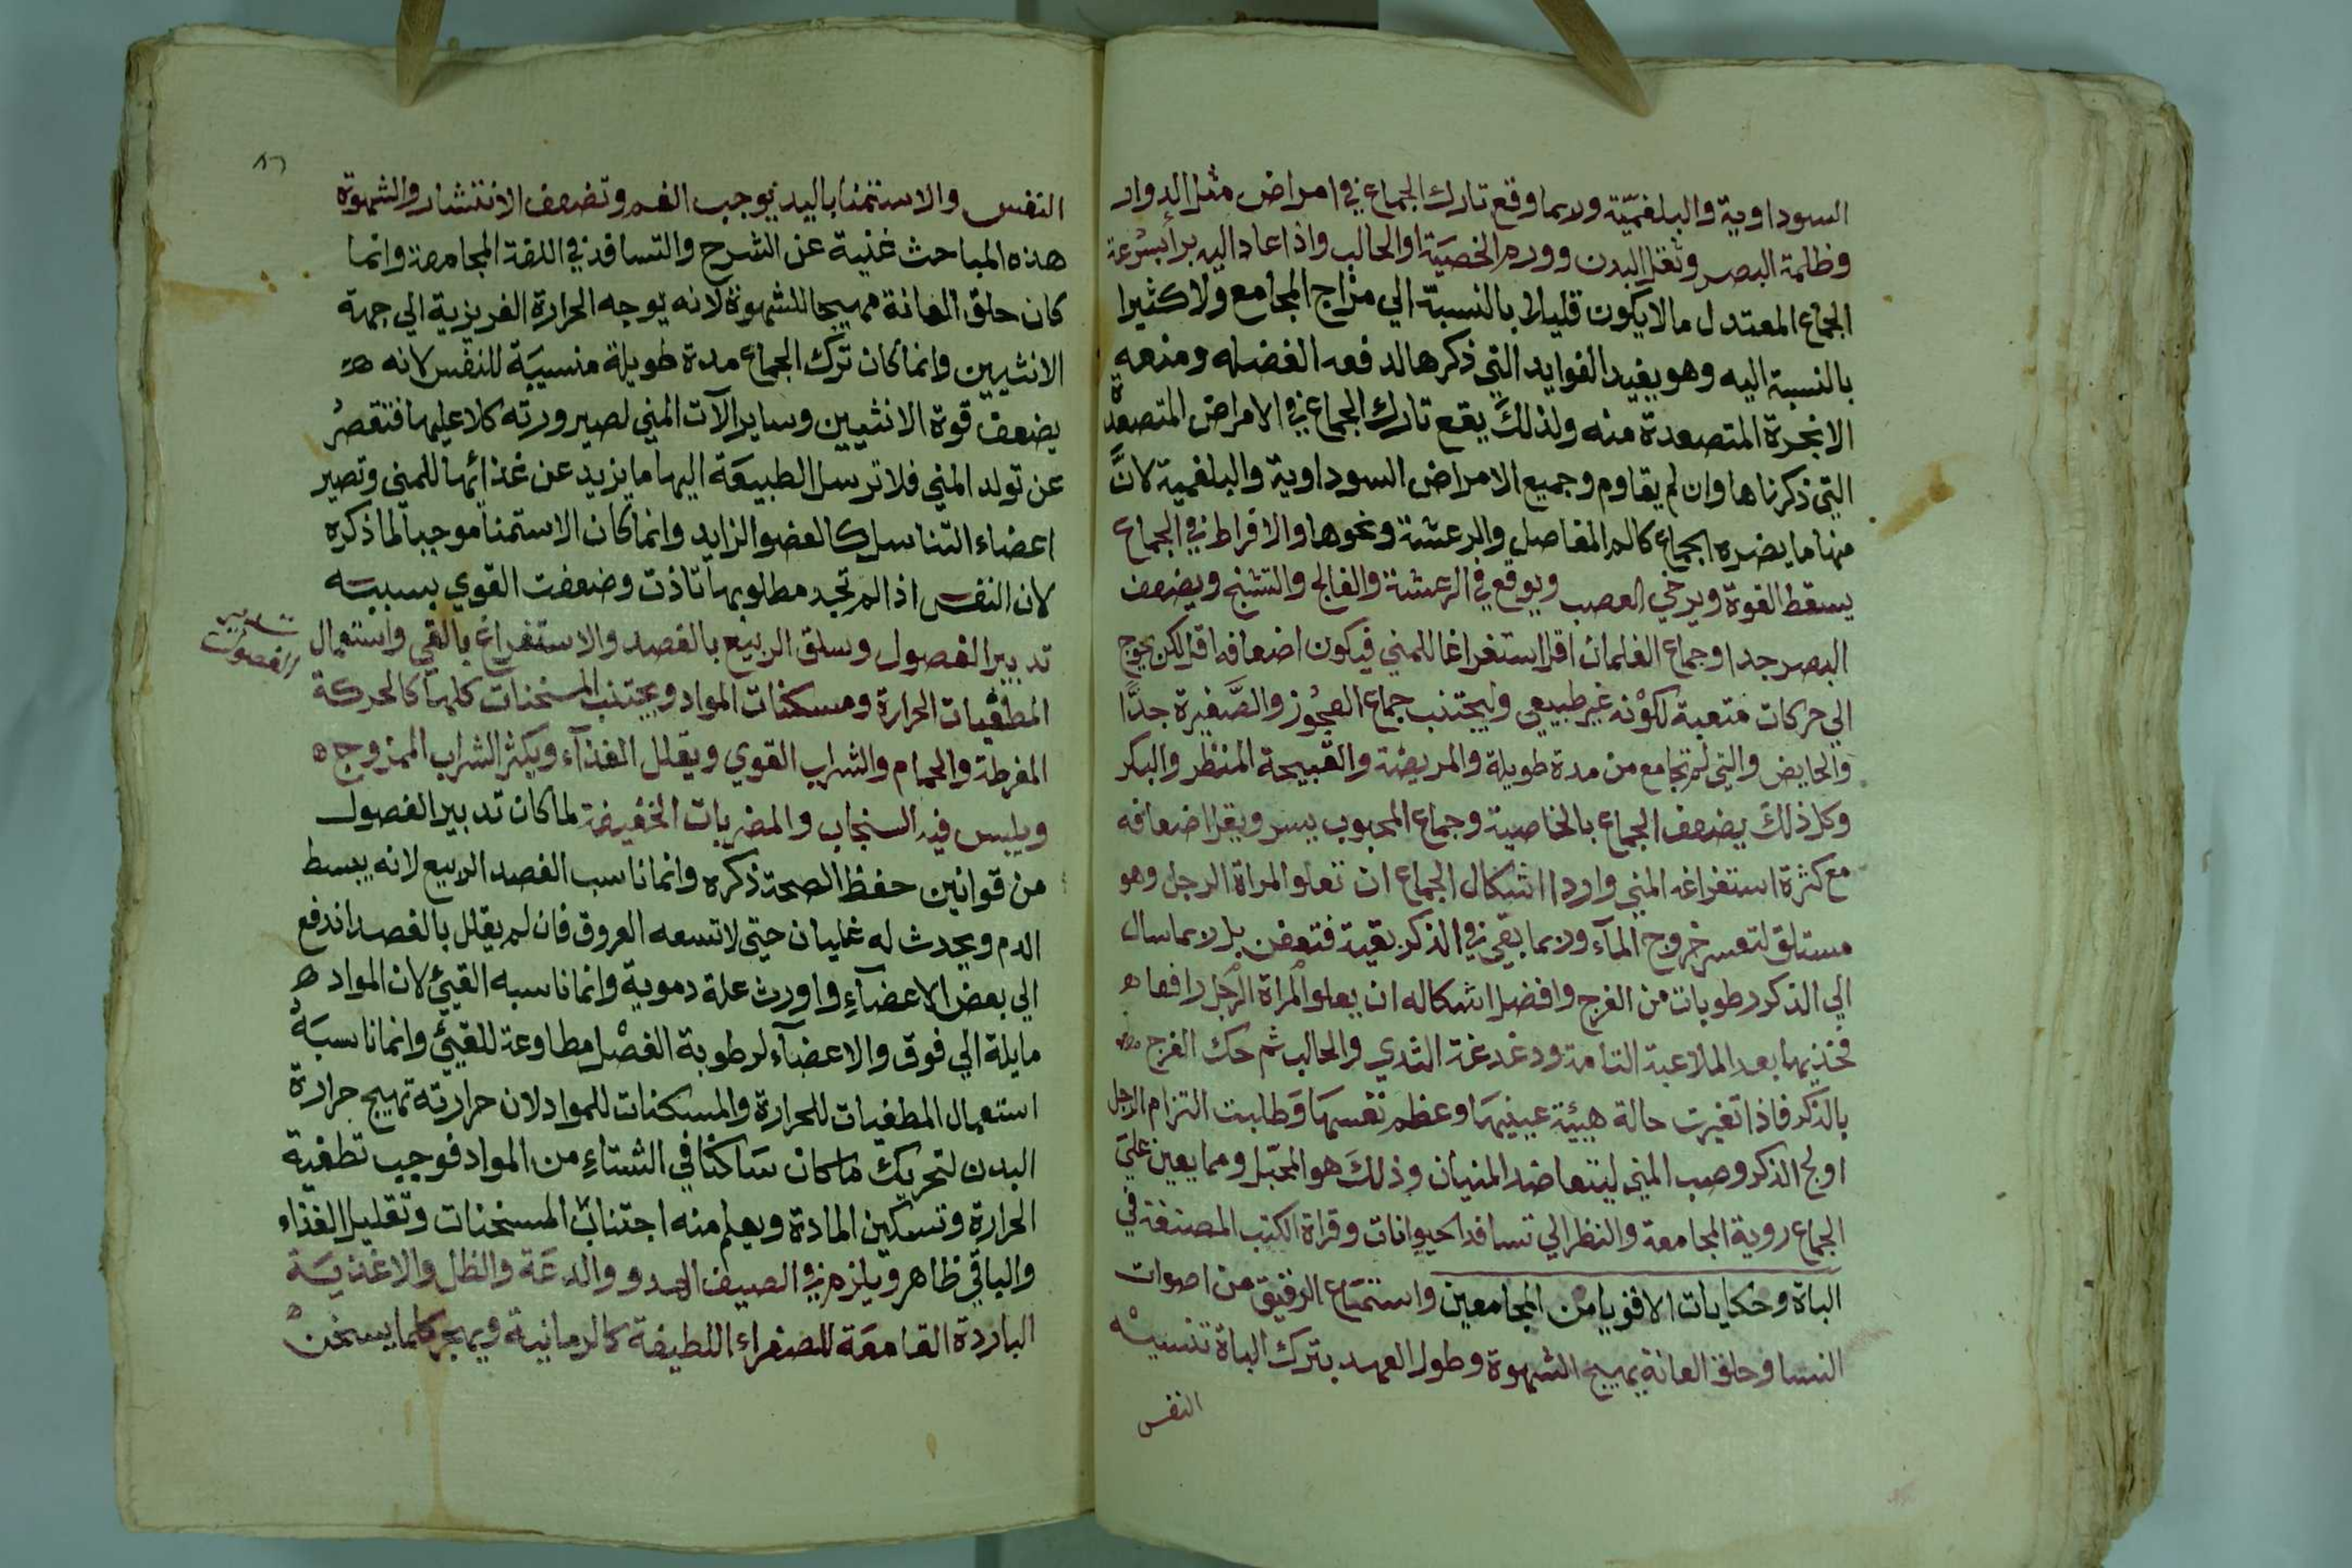 السوداوية والبلغميّة وربما وقع تارك الجماع في امراض مثل الدوار
وظلمة البصر وثقل البدن وورم الخصيَة او الحالب واذا عاد اليه برأ بسُرعة
الجماع المعتدل ما لا يكون قليلا بالنسبة الي مزاج المجامع ولا كثيرا
بالنسبة اليه وهو يفيد الفوايد التي ذكرها لدفعه الفضله ومنعه
الابخرة المتصعدة منه ولذلكَ يقع تارك الجماع في الامراض المتصعدة
التي ذكرناها وان لم يقاوم وجميع الامراض السوداوية والبلغمية لانَّ
منها ما يضره الجماع كالم المفاصل والرعشة ونحوها والافراط في الجماع
يسقط القوة ويرخي العصب ويوقع في الرعشة والفالج والتشنج ويضعف
البصر جدا وجماع الغلمان اقل استفراغا للمني فيكون اضعافه اقل لكن يحوج
الي حركات متعبة لكوْنه غير طبيعي وليجتنب جماع العجُوز والصَّغيرة جدًّا
والحايض والتي لم تجامع من مدة طويلة والمريضة والقبيحة المنظر والبكر
وكل ذلك يضعف الجماع بالخاصية وجماع المحبوب يسر ويقل اضعافه
مع كثرة استفراغه المني واردا اشكال الجماع ان تعلو المراة الرجل وهو
مستلق لتعسر خروج المآء وربما بقي في الذكر بقية فتعفن بل ربما سال
الي الذكر رطوبات من الفرج وافضل اشكاله ان يعلو المراة الرجل رافعا
فخذيها بعد الملاعبة التامة ودغدغة الثدي والحالب ثم حك الفرج
بالذكر فاذا تغيرت حالة هيئة عينيهَا وعظم نفسهَا وَطلبت التزام الرجل
اولج الذكر وصب المني ليتعاضد المنيان وذلكَ هو المحبّل ومما يعين علي
الجماع روية المجامعة والنظر الي تسافد الحيوانات وقراة الكتب المصنفة في
الباة وحكايات الاقويا من المجامعين واستمَاع الرقيق من اصوات
النسا وحلق العانة يهيج الشهوة وطول العهد بترك الباة تنسيه
النفس
النفس والاستمنا باليد يوجب الغم وتضعف الانتشار والشهوة
هذه المباحث غنية عن الشرح والتسافد في اللغة المجامعة وانما
كان حلق العانة مهيجا للشهوة لانه يوجه الحرارة الغريزية الي جهة
الانثيين وانما كان ترك الجماع مدة طويلة منسيَة للنفس لانه
يضعف قوة الانثيين وساير الآت المني لصيرورته كلا عليها فتقصرُ
عن تولد المني فلا ترسل الطبيعَة اليها ما يزيد عن غذائها للمني وتصير
اعضاء التناسل كالعضو الزايد وانما كان الاستمنا موجبا لما ذكره
لان النفس اذا لم تجد مطلوبها تاذت وضعفت القوي بسببه
تدبير الفصول وسلق الربيع بالفصد والاستفراغ بالقي واستعمال
تدبير
الفصول
المطفيات الحرارة ومسكنات المواد ويجتنب المسخنات كلها كالحركة
المفرطة والحمام والشراب القوي ويقلل الغذآء ويكثر الشراب الممزوج
ويلبس فيه السنجاب والمضربات الخفيفة لما كان تدبير الفصول
من قوانين حفظ الصحة ذكره وانما ناسب الفصد الربيع لانه يبسط
الدم ويحدث له غليان حتي لا تسعه العروق فان لم يقلل بالفصد اندفع
الي بعض الاعضآءِ واورث علة دموية وانما ناسبه القيئ لان المواد
مايلة الي فوق والاعضآء لرطوبة الفصْل مطاوعة للقيئ وانما ناسبَهُ
استعمال المطفيات للحرارة والمسكنات للمواد لان حرارته تهيج حرارة
البدن لتحريك ما كان سَاكنا في الشتاءِ من المواد فوجب تطفية
الحرارة وتسكين المادة ويعلم منه اجتناب المسخنات وتقليل الغذاء
والباقي ظاهر ويلزم في الصيف الهدو والدعَة والظل والاغذيَة
الباردة القامعَة للصفراء اللطيفة كالرمانية ويهجر كلما يسخن